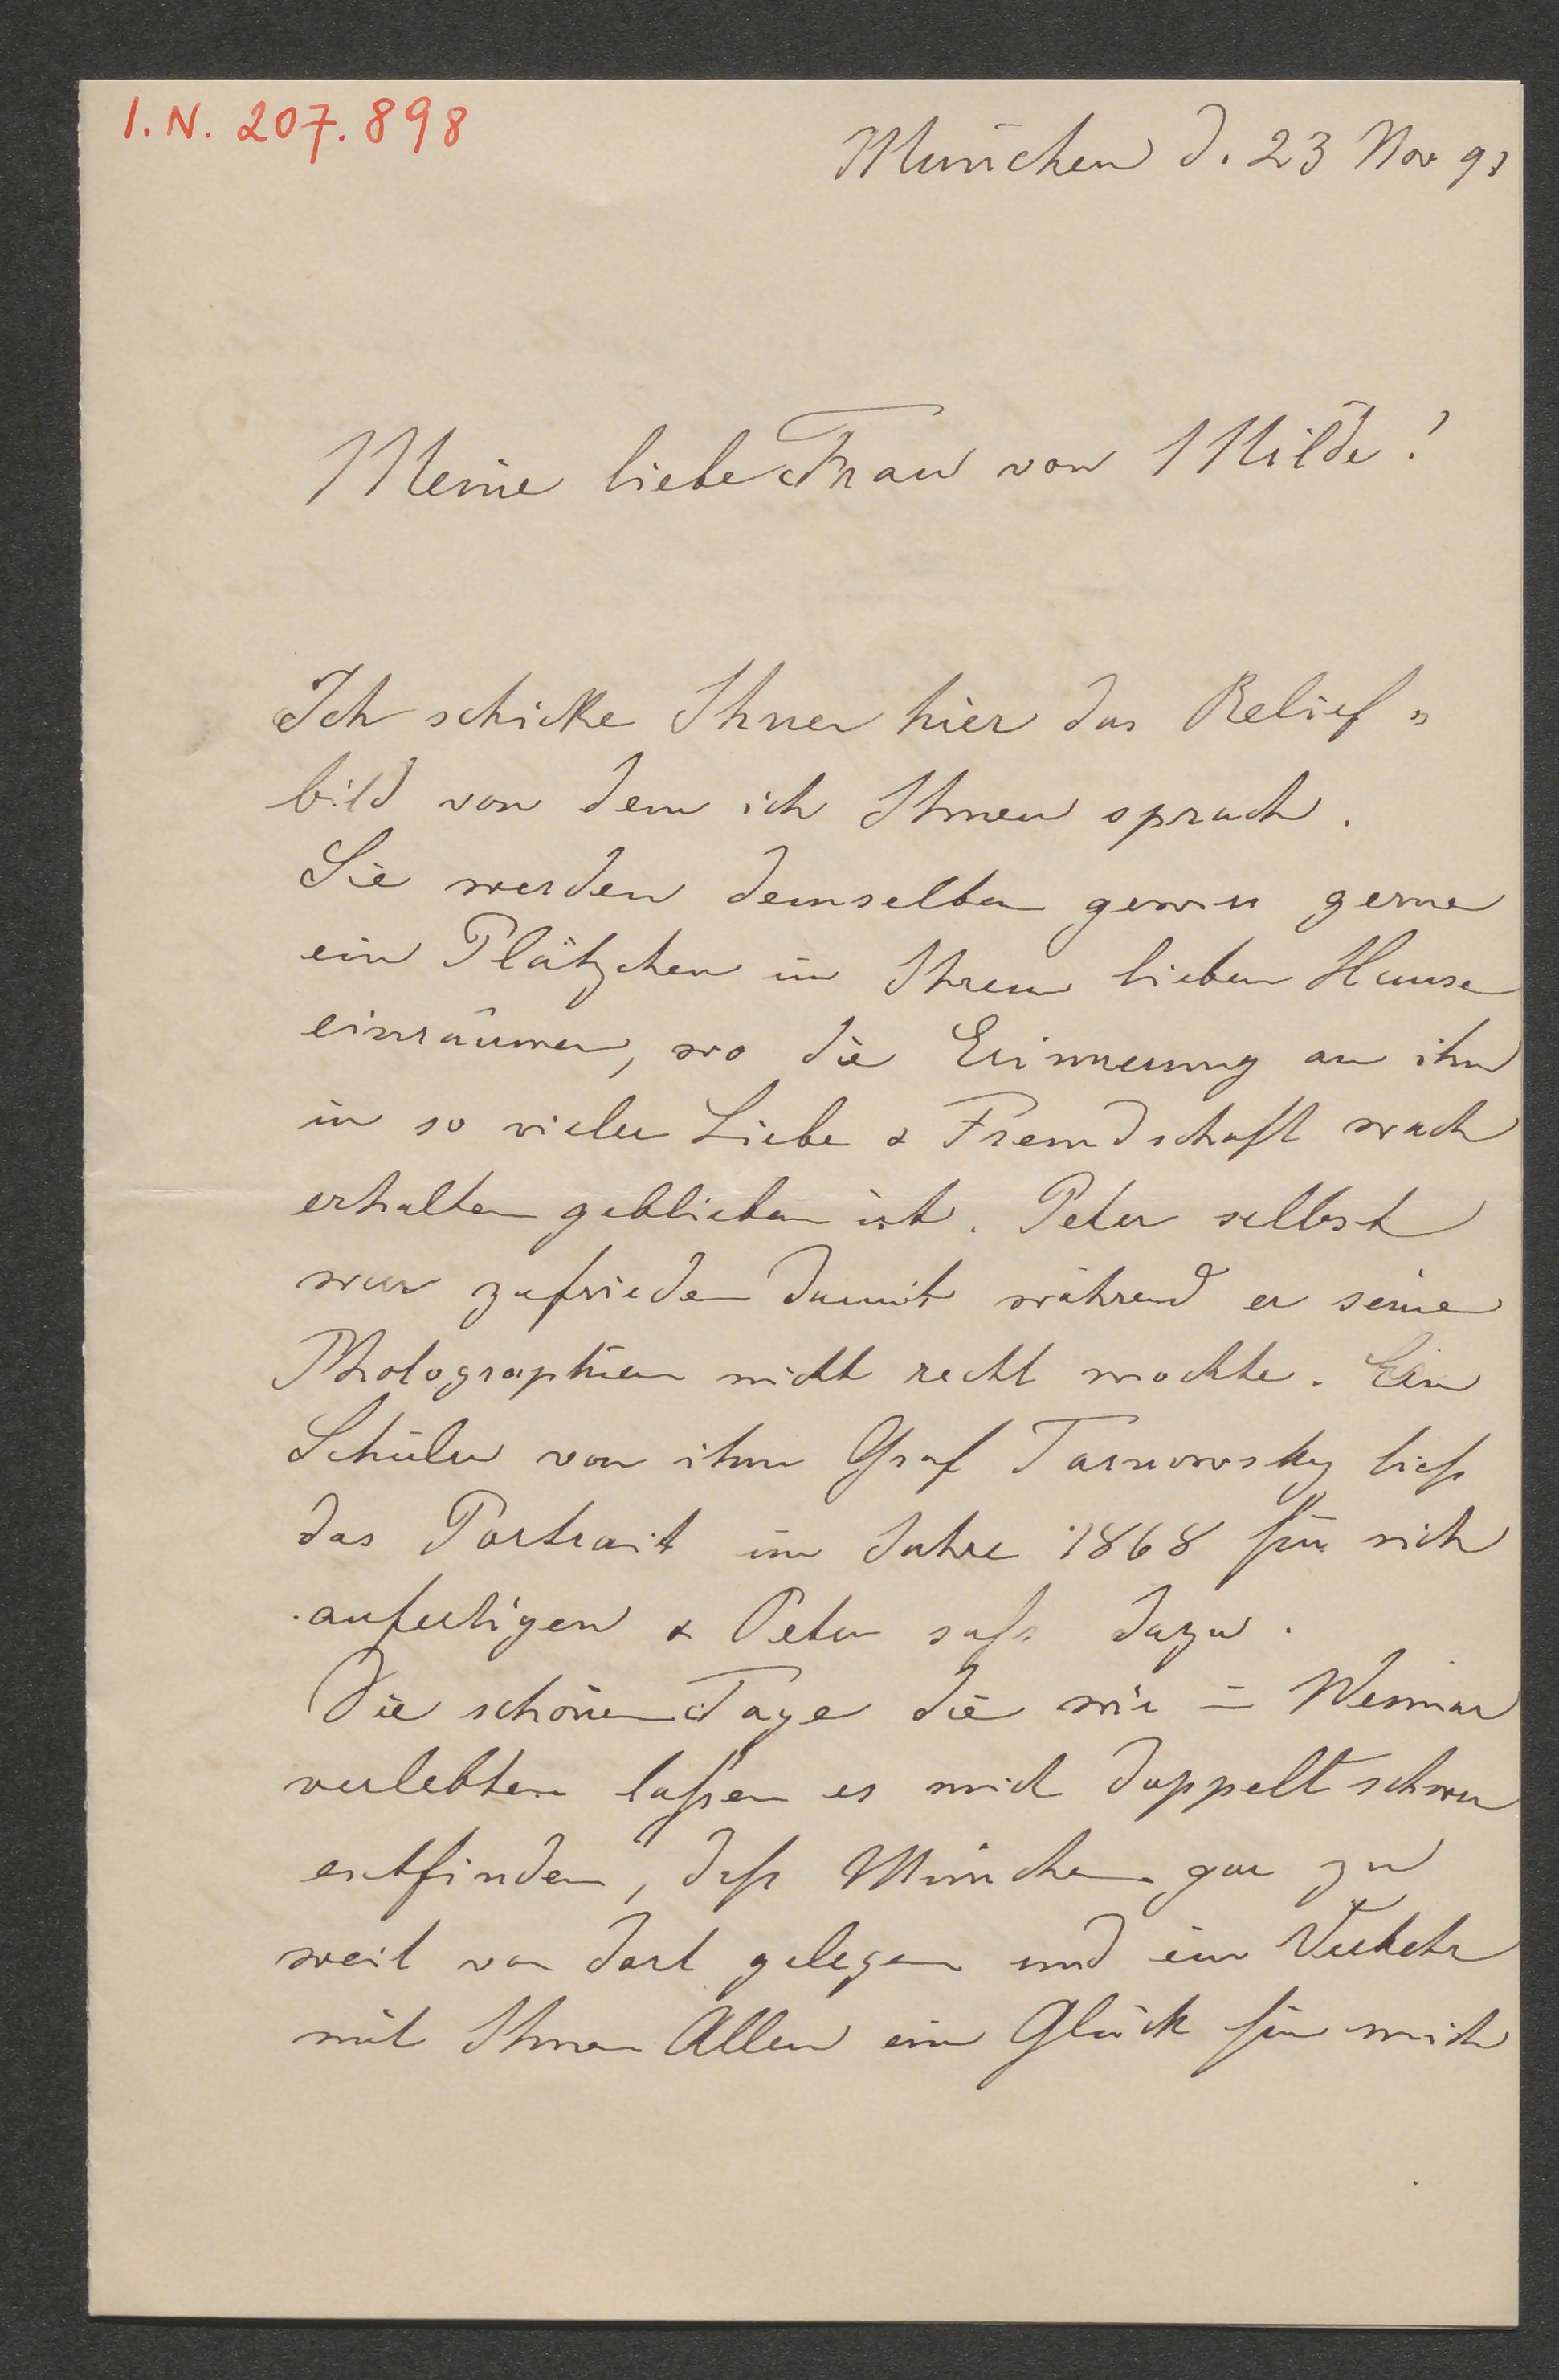 I.N. 207.898
München d. 23 Nov 91
Meine liebe Frau von Milde!
Ich schicke Ihnen hier das Relief=
bild von dem ich Ihnen sprach.
Sie werden demselben gewiss gerne
ein Plätzchen in Ihrem lieben Hause
einräumen, wo die Erinnerung an ihn
in so vieler Liebe & Freundschaft wach
erhalten geblieben ist. Peter selbst
war zufrieden damit während er seine
Photographien nicht recht mochte. Ein
Schüler von ihm Graf Tarnowsky ließ
das Portrait im Jahre 1868 für sich
anfertigen & Peter saß dazu.
Die schönen Tage die wir in Weimar
verlebten laßen es mich doppelt schwer
entfinden, daß München gar zu
weit von dort gelegen und ein Verkehr
mit Ihnen Allen ein Glück für mich